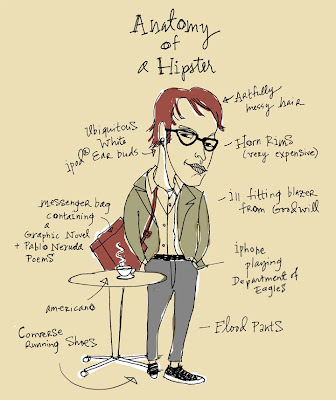 Anatomy
of
a Hipster
Artfully
messy hair
Ubiquitous
White
ipod® Ear buds
Horn Rims
(very expensive)
messenger bag
containing
a
Graphic Novel
+ Pablo Neruda
Poems
ill fitting blazer
from Goodwill
iphone
playing
Department of
Eagles
americano
Converse
Running Shoes
Flood Pants